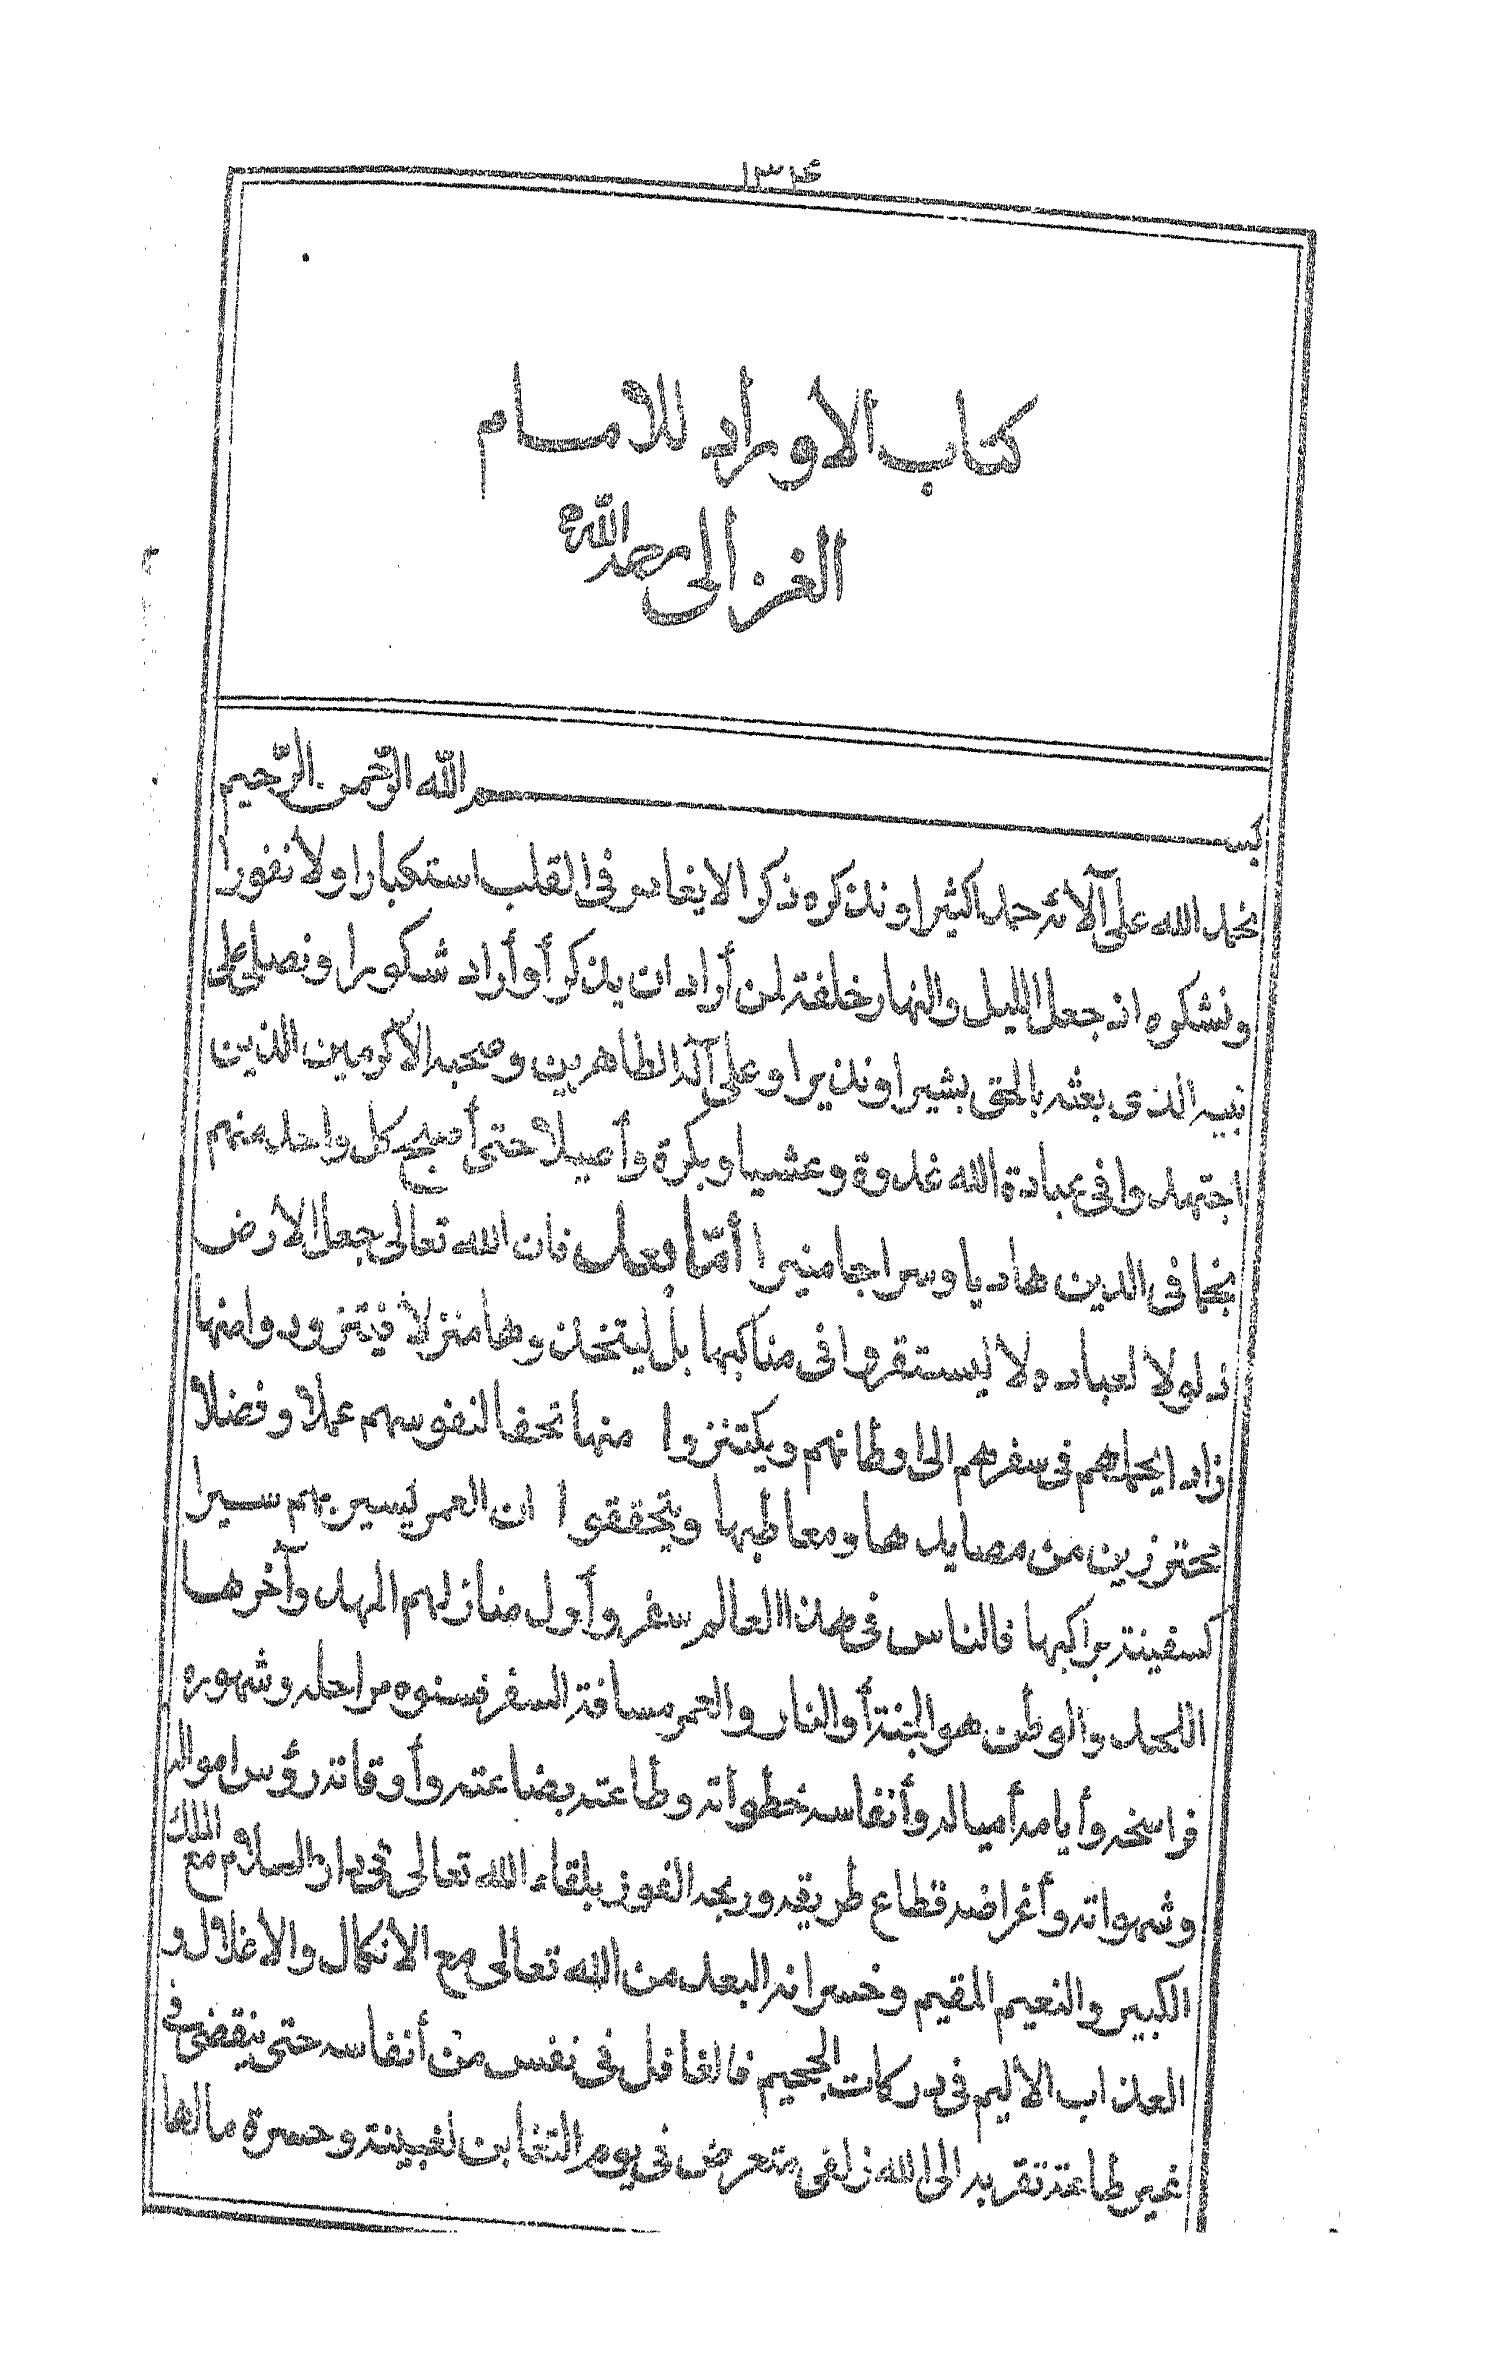 ١٣٤
كتاب الاوراد للامام
الغزالى رحمه الله
بسم الله الرّحمن الرّحيم
نحمد الله على آلائه حمدا كثيرا ونذكره ذكرا لا يغادر فى القلب استكبارا ولا نفورا
ونشكره اذ جعل الليل والنهار خلفة لمن أراد ان يذكر أو أراد شكورا ونصلى على
نبيه الذى بعثه بالحق بشيرا ونذيرا وعلى آله الطاهرين وصحبه الاكرمين الذين
اجتهدوا فى عبادة الله غدوة وعشيا وبكرة وأصيلا حتى أصبح كل واحد منهم
نجما فى الدين هاديا وسراجا منيرا أمّا بعد فان الله تعالى جعل الأرض
ذلولا لعباده لا ليستقروا فى مناكبها بل ليتخذوها منزلا فيتزودوا منها
زادا يحملهم فى سفرهم الى اوطانهم ويكتنزوا منها تحفا لنفوسهم عملا وفضلا
محترزين من مصايدها ومعاطبها ويتحققوا ان العمر يسير بهم سيرا
كسفينة براكبها فالناس فى هذا العالم سفر وأول منازلهم المهد وآخرها
اللحد والوطن هو الجنة أو النار والعمر مسافة السفر فسنوه مراحله وشهوره
فراسخه وأيامه أمياله وأنفاسه خطواته وطاعته بضاعته وأوقاته رؤس امواله
وشهواته وأغراضه قطاع طريقه وربحه الفوز بلقاء الله تعالى فى دار السلام مع الملك
الكبير والنعيم المقيم وخسرانه البعد من الله تعالى مع الانكال والاغلال و
العذاب الأليم فى دركات الجحيم فالغافل فى نفس من أنفاسه حتى ينقضى فى
غير طاعة تقربه الى الله زلفى متعرض فى يوم التغابن لغبينة وحسرة مالها